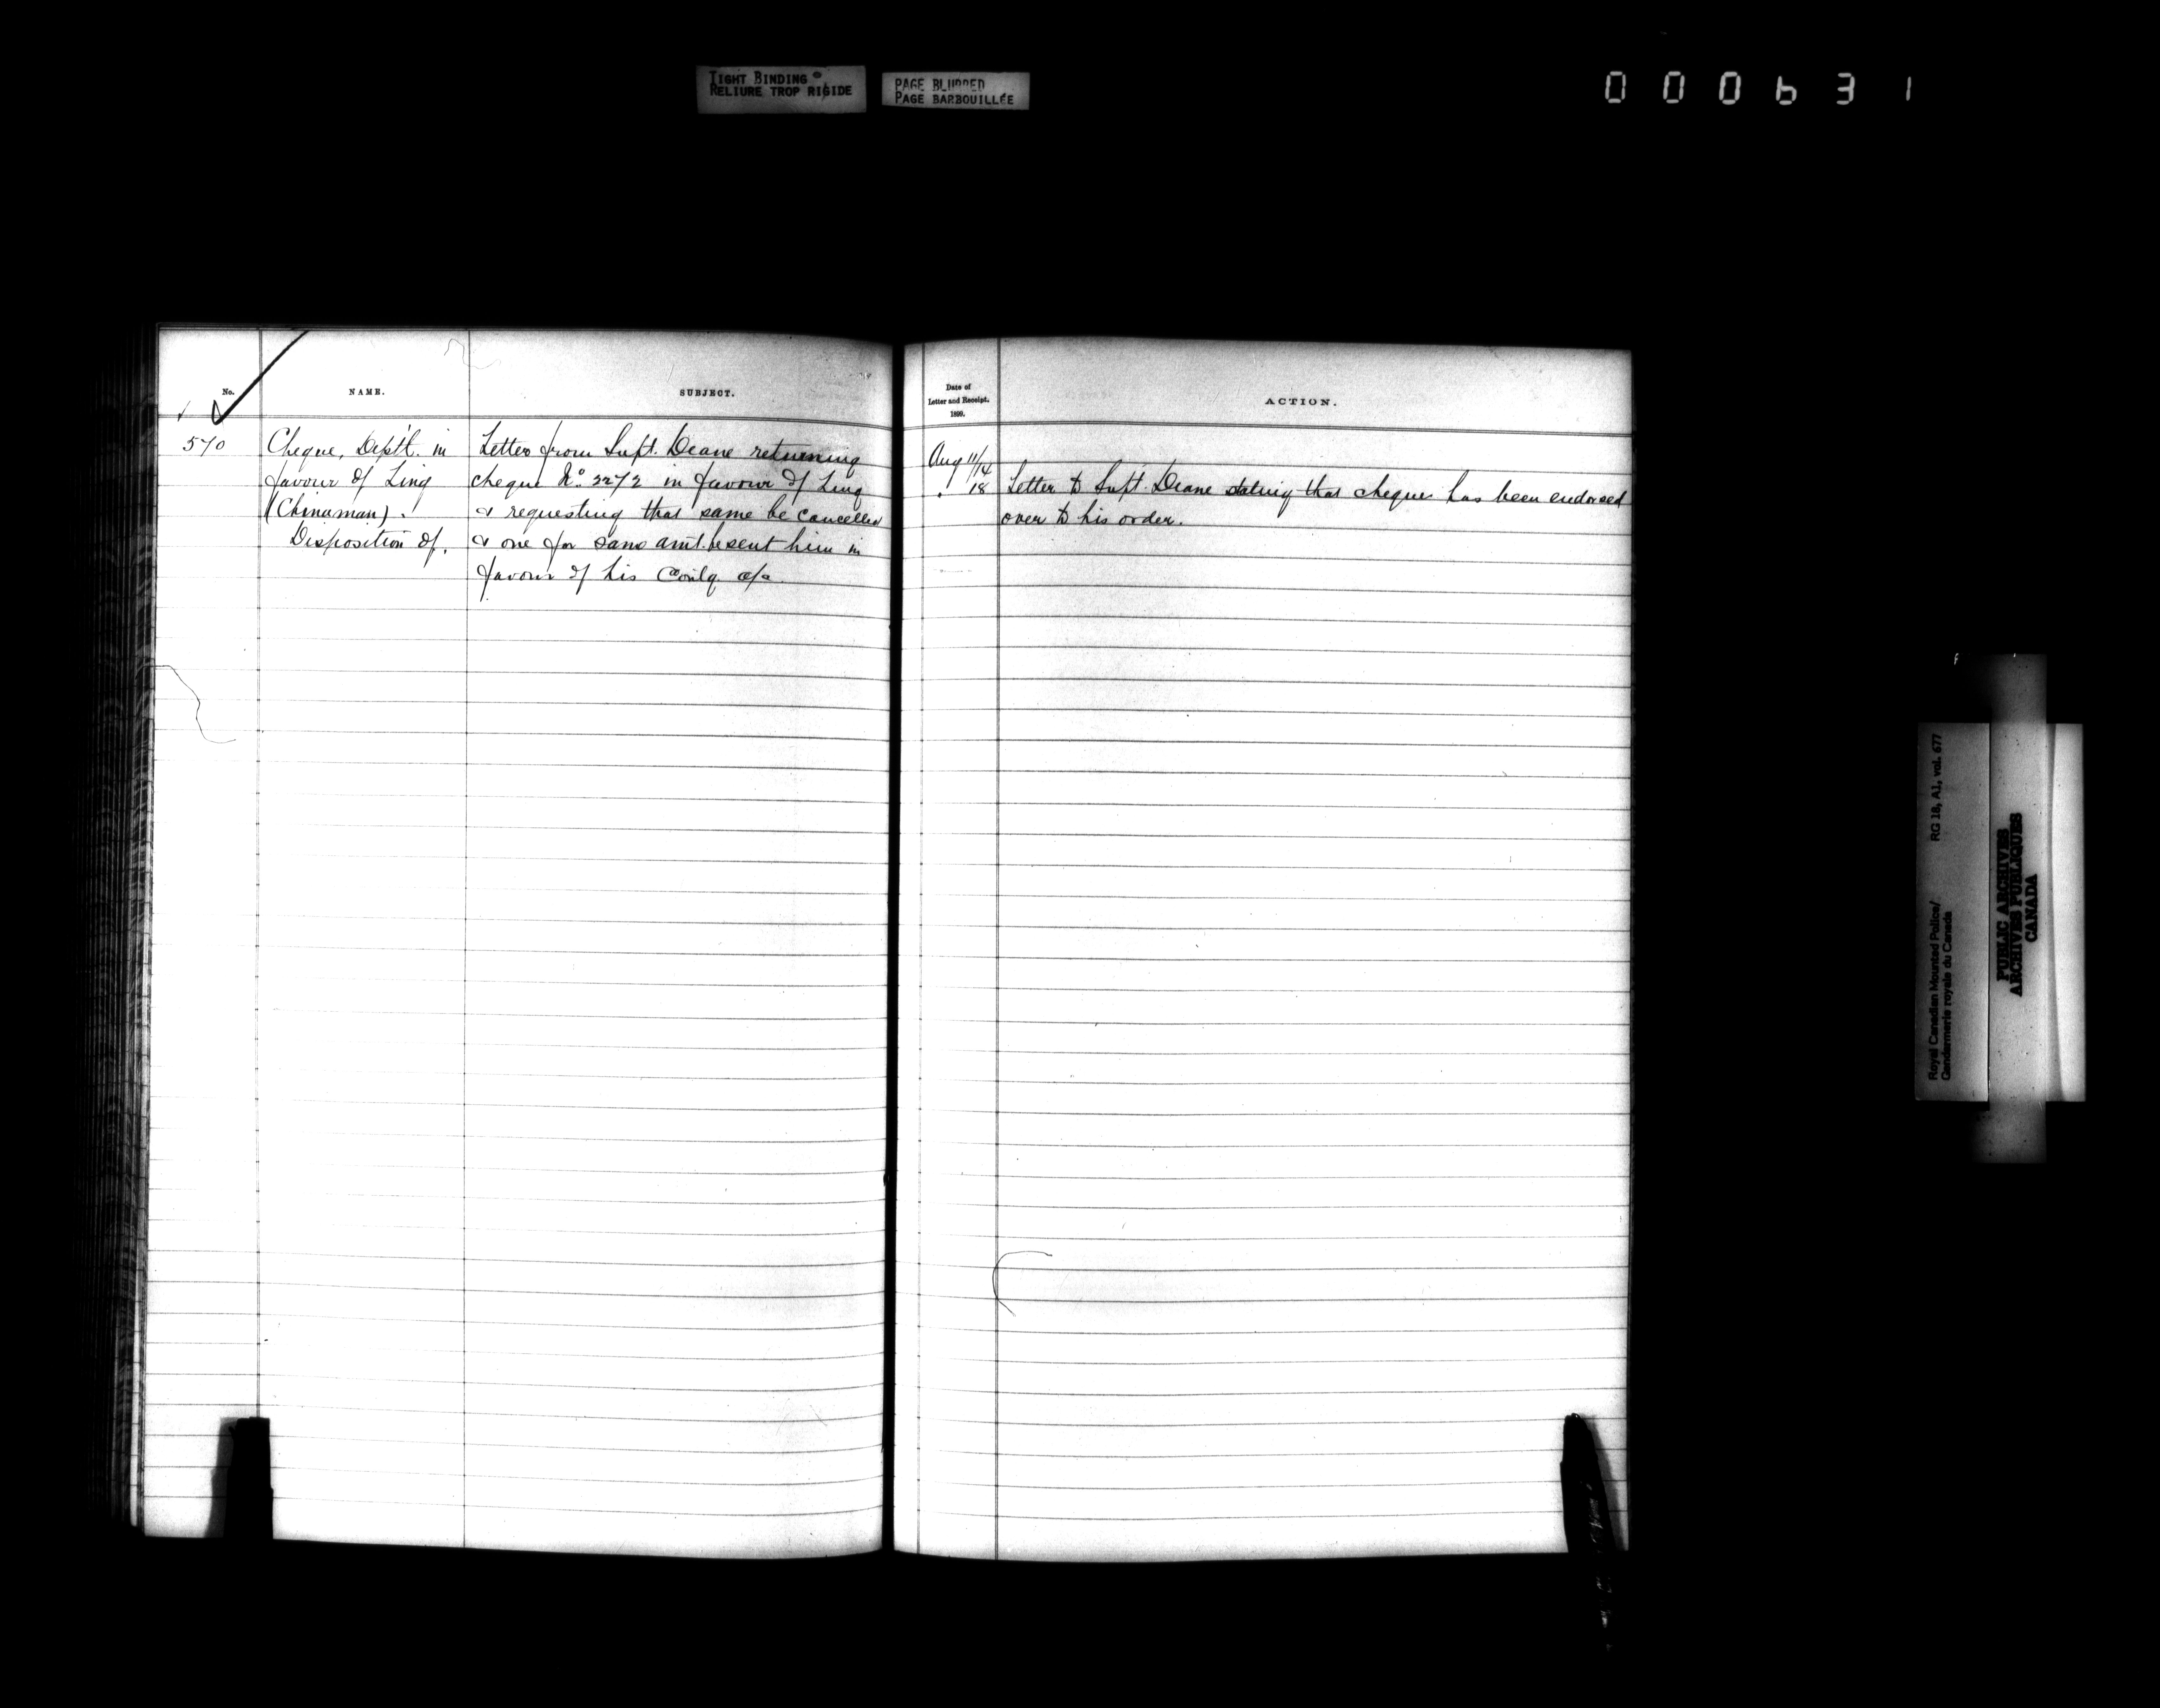 TIGHT BINDING
RELIURE TROP RIGIDE
PAGE BLURRED
PAGE BARBOUILLÉE
000631
No.
NAME.
SUBJECT.
570
Cheque, Dept'l. in
favour of Ling
(Chinaman).
Disposition of.
Letter from Supt. Deane returning
cheque No. 2272 in favour of Ling
& requesting that same be cancelled
& one for same amt. be sent him in
favour of his a/c.
Date of
Letter and Receipt.
1899.
ACTION.
Aug 11/14
" 18
Letter to Supt. Deane stating that cheque has been endorsed
over to his order.
Royal Canadian Mounted Police/
Gendarmerie royale du Canada
RG 18, A1, vol. 677
PUBLIC ARCHIVES
ARCHIVES PUBLIQUES
CANADA